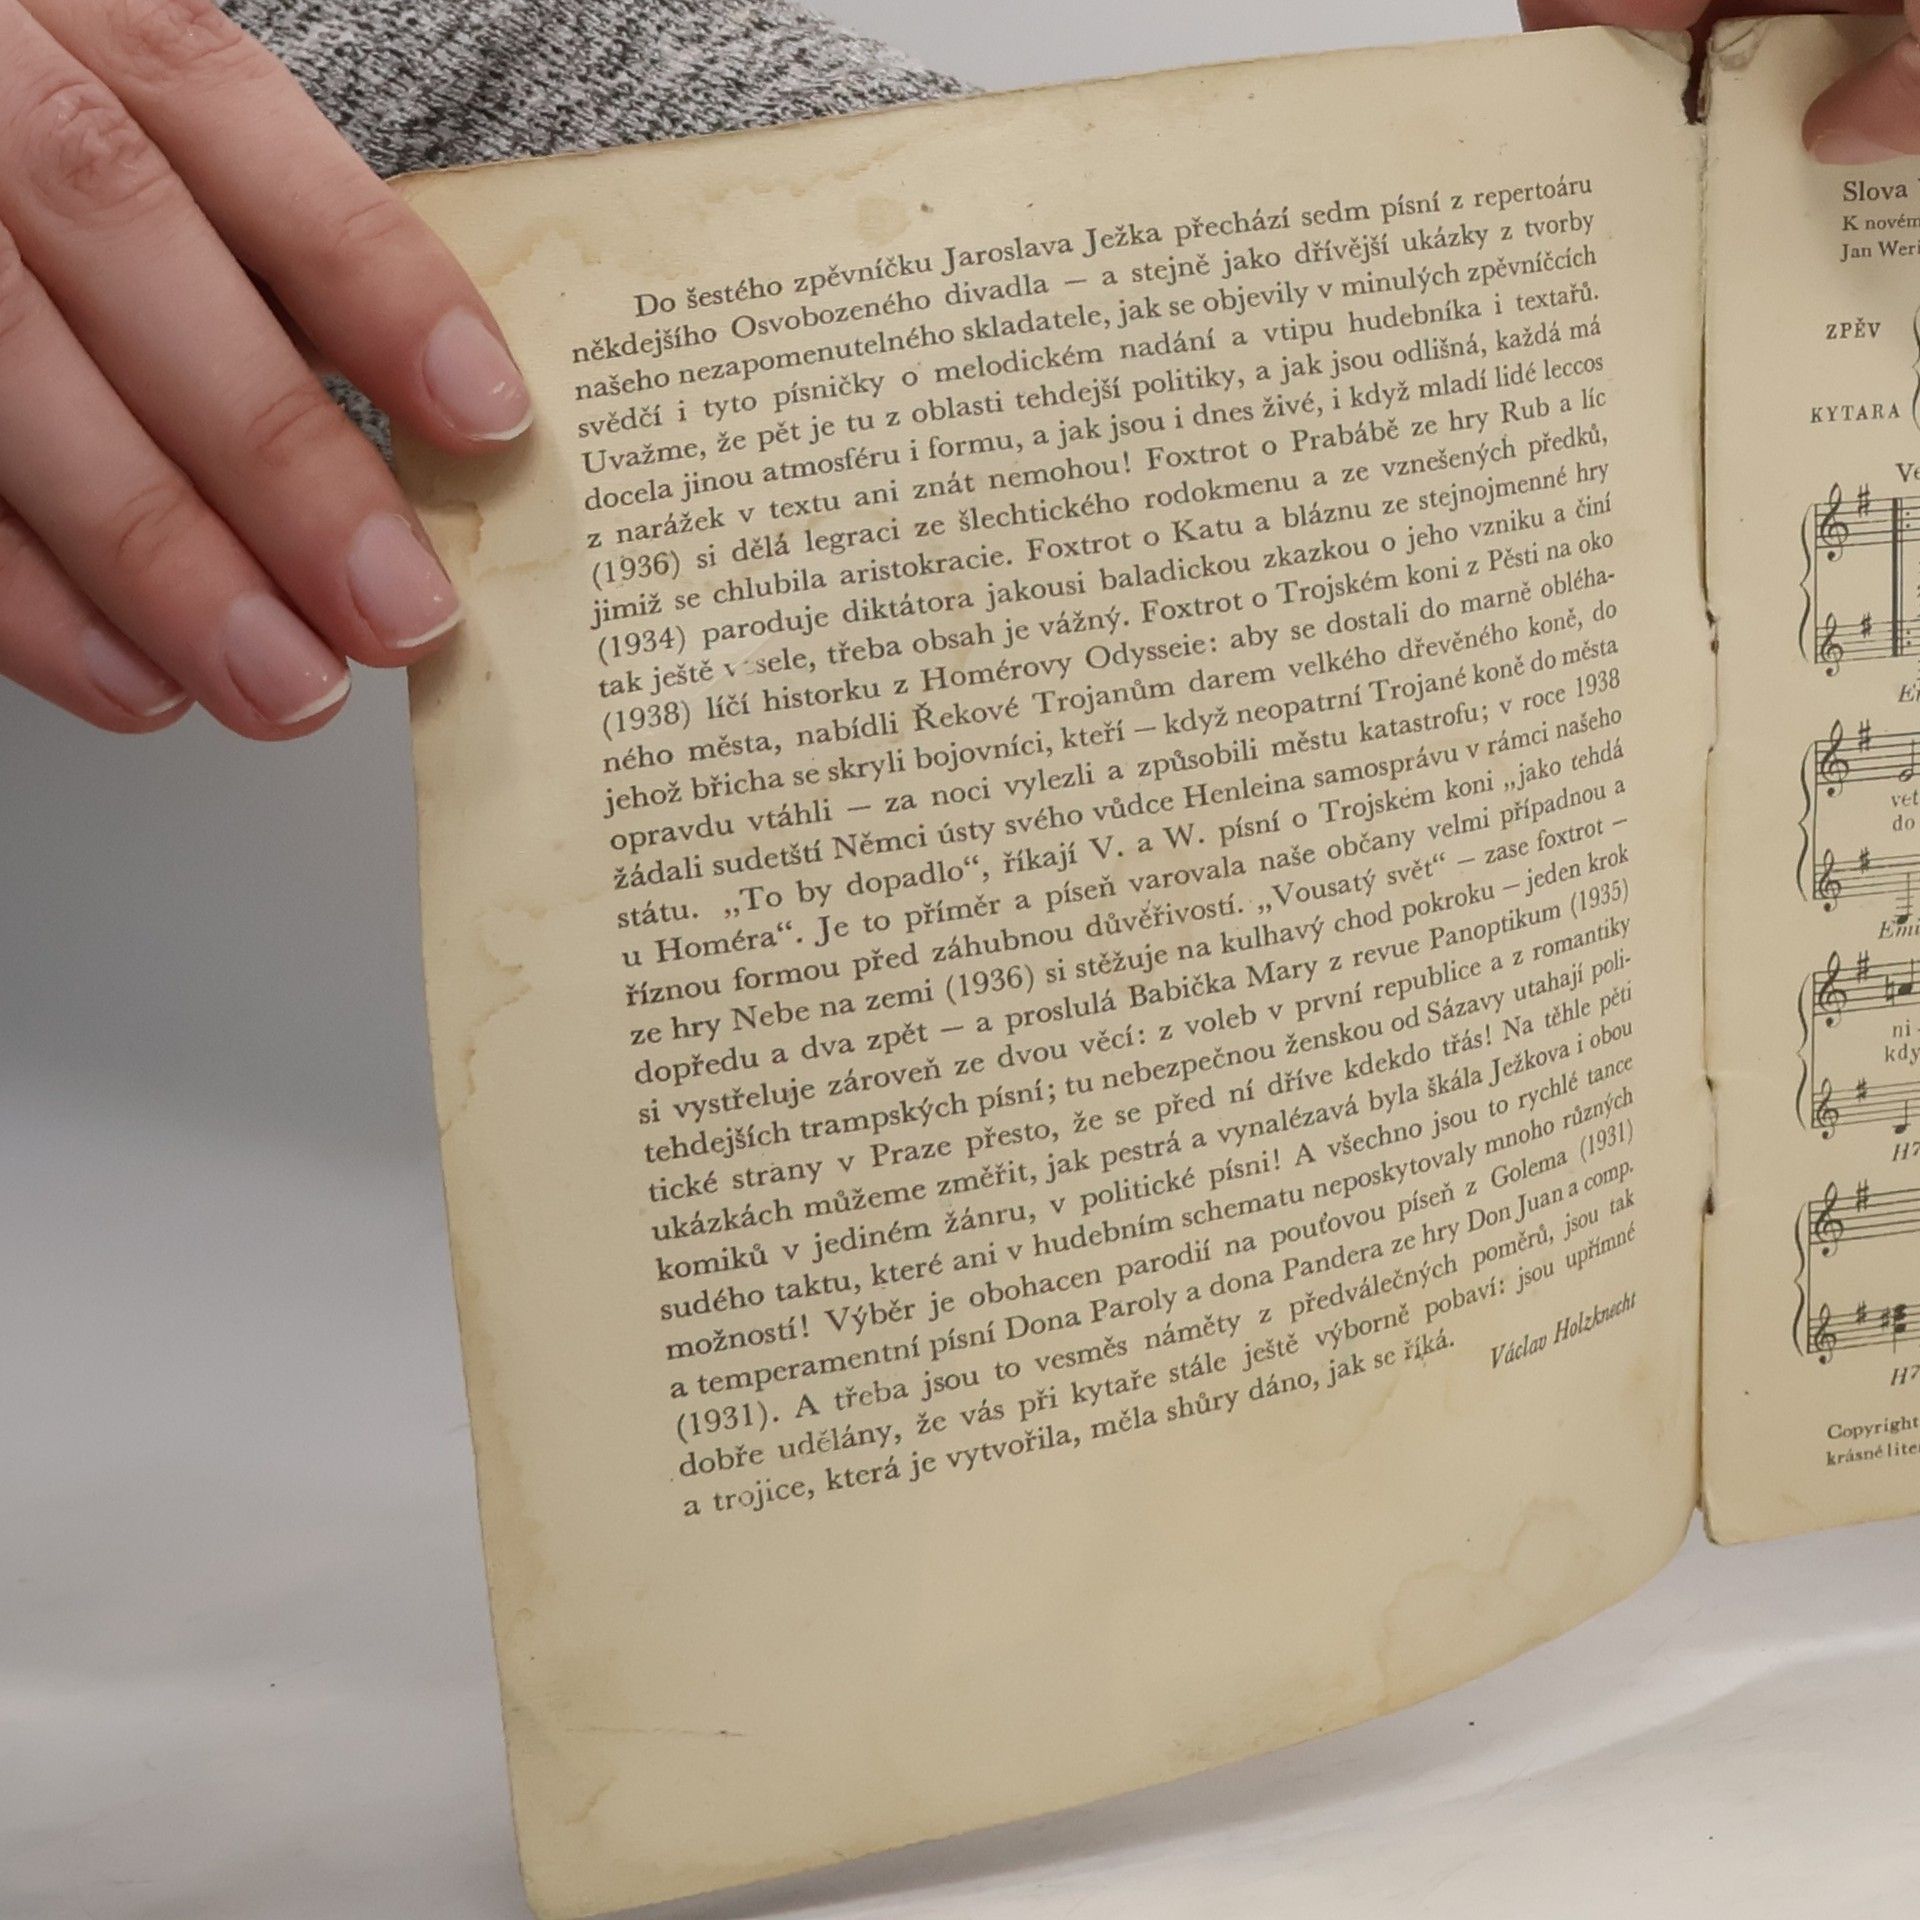 Do šestého zpěvníčku Jaroslava Ježka přechází sedm písní z repertoáru
někdejšího Osvobozeného divadla — a stejně jako dřívější ukázky z tvorby
našeho nezapomenutelného skladatele, jak se objevily v minulých zpěvníčcích
svědčí i tyto písničky o melodickém nadání a vtipu hudebníka i textařů.
Uvažme, že pět je tu z oblasti tehdejší politiky, a jak jsou odlišná, každá má
docela jinou atmosféru i formu, a jak jsou i dnes živé, i když mladí lidé leccos
z narážek v textu ani znát nemohou! Foxtrot o Prabábě ze hry Rub a líc
(1936) si dělá legraci ze šlechtického rodokmenu a ze vznešených předků,
jimiž se chlubila aristokracie. Foxtrot o Katu a bláznu ze stejnojmenné hry
(1934) paroduje diktátora jakousi baladickou zkazkou o jeho vzniku a činí
tak ještě vesele, třeba obsah je vážný. Foxtrot o Trojském koni z Pěsti na oko
(1938) líčí historku z Homérovy Odysseie: aby se dostali do marně obléha-
ného města, nabídli Řekové Trojanům darem velkého dřevěného koně, do
jehož břicha se skryli bojovníci, kteří — když neopatrní Trojané koně do města
opravdu vtáhli — za noci vylezli a způsobili městu katastrofu; v roce 1938
žádali sudetští Němci ústy svého vůdce Henleina samosprávu v rámci našeho
státu. „To by dopadlo“, říkají V. a W. písní o Trojském koni „jako tehdá
u Homéra“. Je to příměr a píseň varovala naše občany velmi případnou a
říznou formou před záhubnou důvěřivostí. „Vousatý svět“ — zase foxtrot —
ze hry Nebe na zemi (1936) si stěžuje na kulhavý chod pokroku — jeden krok
dopředu a dva zpět — a proslulá Babička Mary z revue Panoptikum (1935)
si vystřeluje zároveň ze dvou věcí: z voleb v první republice a z romantiky
tehdejších trampských písní; tu nebezpečnou ženskou od Sázavy utahají poli-
tické strany v Praze přesto, že se před ní dříve kdekdo třás! Na těhle pěti
ukázkách můžeme změřit, jak pestrá a vynalézavá byla škála Ježkova i obou
komiků v jediném žánru, v politické písni! A všechno jsou to rychlé tance
sudého taktu, které ani v hudebním schematu neposkytovaly mnoho různých
možností! Výběr je obohacen parodií na pouťovou píseň z Golema (1931)
a temperamentní písní Dona Paroly a dona Pandera ze hry Don Juan a comp.
(1931). A třeba jsou to vesměs náměty z předválečných poměrů, jsou tak
dobře udělány, že vás při kytaře stále ještě výborně pobaví: jsou upřímné
a trojice, která je vytvořila, měla shůry dáno, jak se říká.
Václav Holzknecht
Slova
K novém
Jan Weri
ZPĚV
KYTARA
Ve
Emi
vet
do
ni
kdy
H7
H7
Copyright
krásné lite